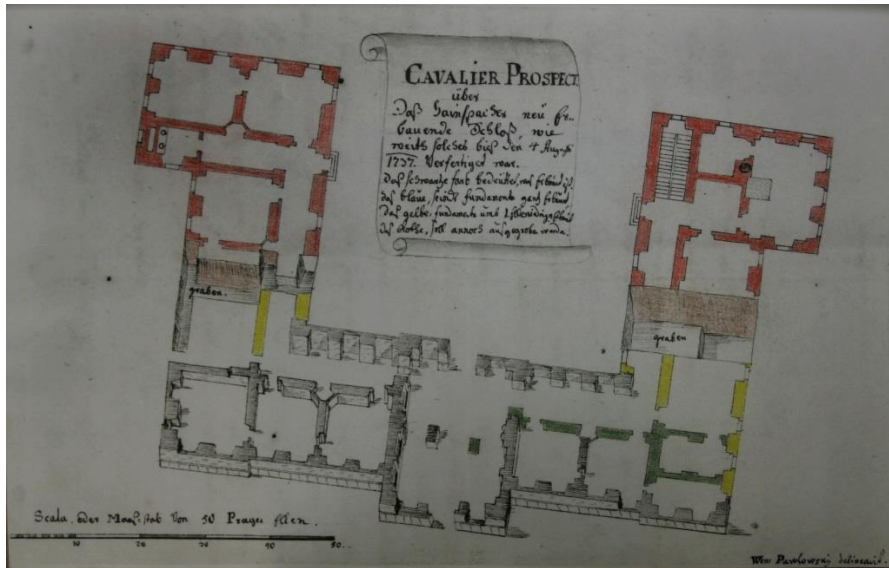 CAVALIER PROSPECT
über
Daß Hainspacher neü er-
bauende Schloß wie
weith solches biß den 4 Augusti
1737. Verfertiget war.
das schwartze fast bedeütet,
das blaue, seindt fundamenta gantz
das gelbe, fundament und
das Rothe, soll annoch ausgegrabe werde.
graben.
graben
Scala, oder Maasstab von 50 Prager Ellen.
10 20 30 40 50
Wen Pawlowskj delineavit.